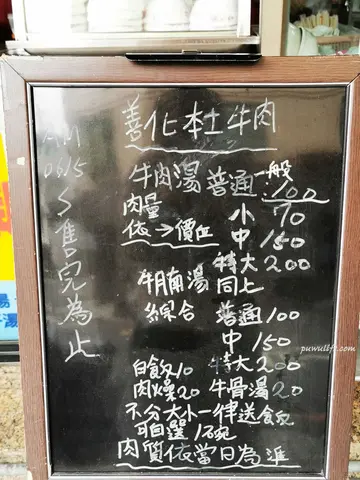 善化本土牛肉
AM
0615
S
售完為止
牛肉湯 普通 一般 100
肉量 小 70
依→價位 中 150
特大 200
牛腩湯 同上
綜合 普通 100
中 150
白飯10 特大 200
肉燥20 牛骨湯 20
不分大小一律送飯
可自選 1碗
肉質依當日為準
puwulife.com